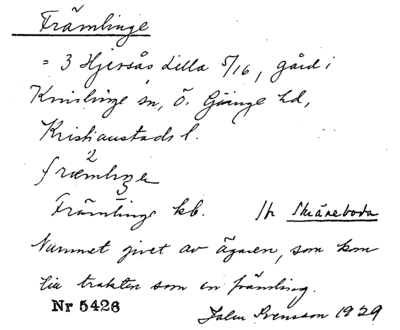 Främlinge
= 3 Hjersås Lilla 5/16, gård i
Knislinge sn, Ö. Göinge hd,
Kristianstads l.
2
Främlinge kb. Skåneboda
Namnet givet av ägaren, som kom
till trakten som en främling.
Nr 5426 Svensson 1929